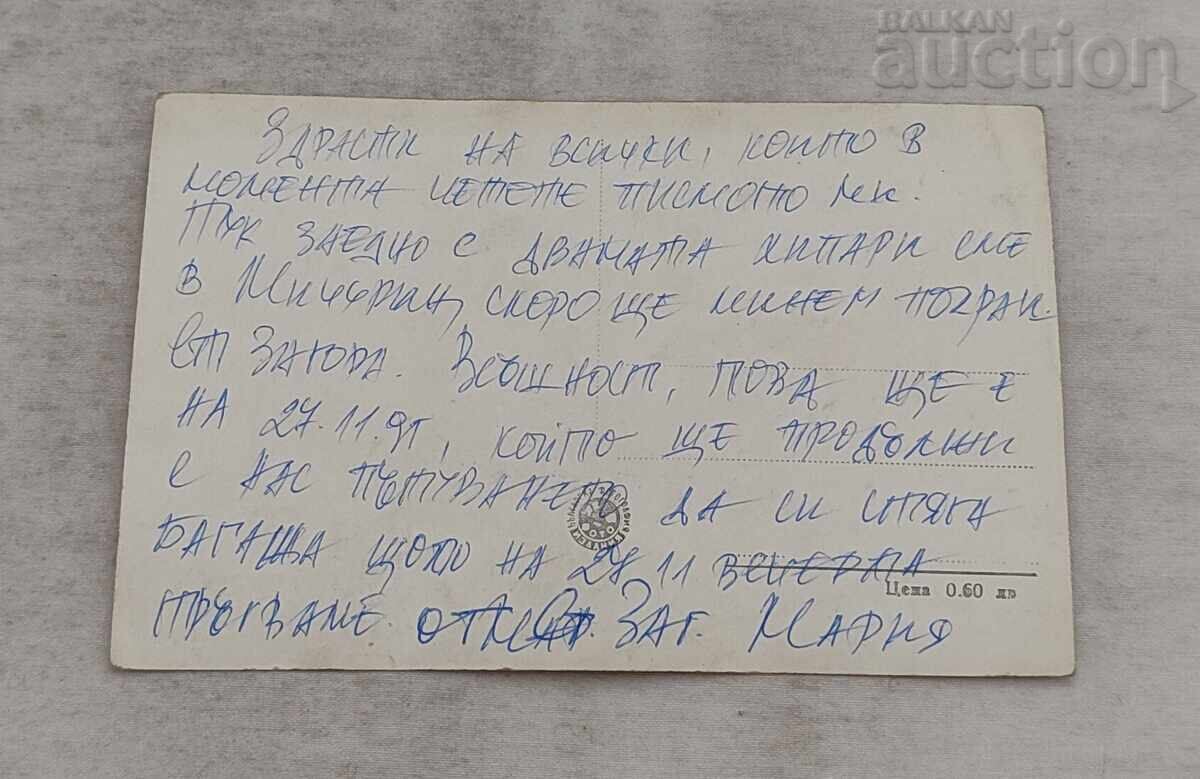 BALKAN
auction
Здрасти на всички, които в
момента четете писмото ми.
Тук заедно с двамата хипари сме
в Мичурин, скоро ще минем покрай
Ст Загора. Всъщност, това ще е
на 27.11.91, който ще продължи
с нас пътуването да си стяга
багажа щото на 27 11 вечерта
тръгваме от Ст. Заг. Мария
Цена 0.60 лв